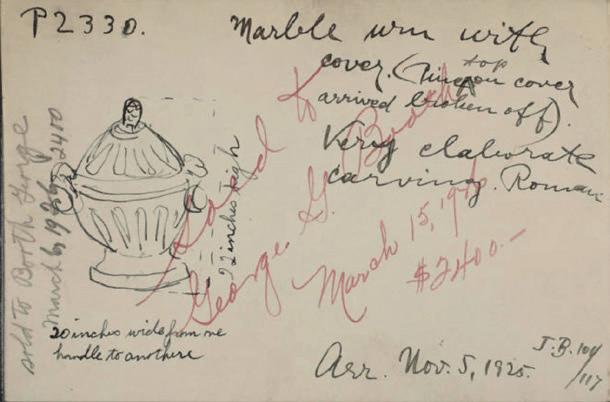 P2330.
Marble urn with
cover. (Pine on top cover
arrived broken off).
Very elaborate
carving. Roman
Sold to
George G. Booth
March 15, 19
$2400.-
22 inches high
20 inches wide from one
handle to anothere
sold to Booth George
March 19 2400
Arr. Nov. 5, 1925.
J.B. 104/
117